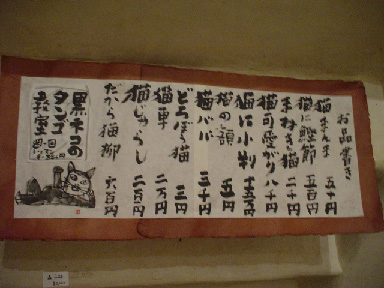 お品書き
猫まんま 五十円
猫に鰹節 五百円
まねき猫 二千円
猫可愛がり 八千円
猫に小判 五万円
猫の額 五円
猫ババ 二十円
どろぼう猫 二円
猫車 二万円
猫じゃらし 二百円
だから猫柳 六百円
黒ネコの
タンゴ
教室